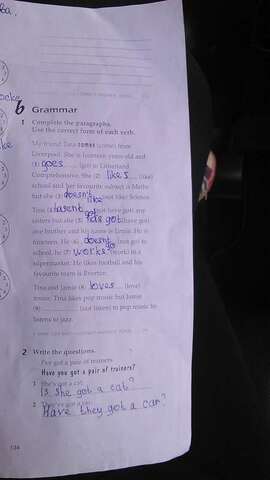 6 Grammar
1 Complete the paragraphs.
Use the correct form of each verb.
My friend Tina comes (come) from
Liverpool. She is fourteen years old and
(1) goes (go) to Limeland
Comprehensive. She (2) likes (like)
school and her favourite subject is Maths
but she (3) doesn't like (not like) Science.
Tina (4) hasent got (not have got) any
sisters but she (5) has got (have got)
one brother and his name is Jamie. He is
nineteen. He (6) doesnt go (not go) to
school, he (7) works (work) in a
supermarket. He likes football and his
favourite team is Everton.
Tina and Jamie (8) loves (love)
music. Tina likes pop music but Jamie
(9) (not listen) to pop music he
listens to jazz.
2 Write the questions.
I've got a pair of trainers.
Have you got a pair of trainers?
1 She's got a cat.
Is she got a cat?
2 They've got a car.
Have they got a car?
134